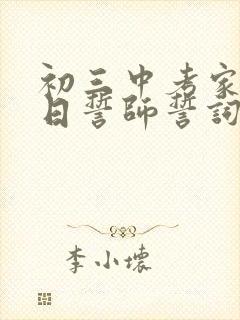 初三中考家
日誓师誓词
李小壤